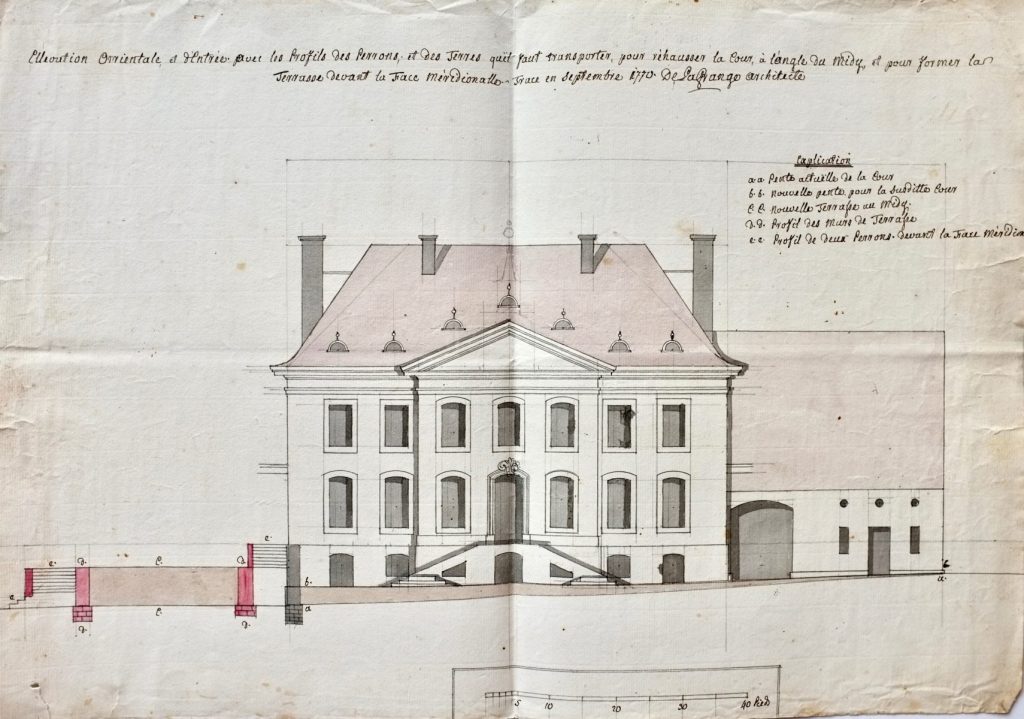 Ellevation Orrientale, et d'Entrée avec les Profils des Perrons, et des Terres quil faut transporter, pour réhausser la Cour, à l'angle du Midy, et pour former la
Terrasse devant la Face Méridionalle. Tracé en septembre 1770. De LaGrange architecte
Explication
a.a Pente actuelle de la Cour
b.b. Nouvelle pente pour la Susditte Cour
C.C. Nouvelle Terrasse au Midy.
d.d. Profil des Murs de Terrasse
e.e Profil de deux Perrons devant la Face Méridion
e. d. C. d. e.
e. b. b.
a. a.
C.
d. d.
5 10 20 30 40 Pieds